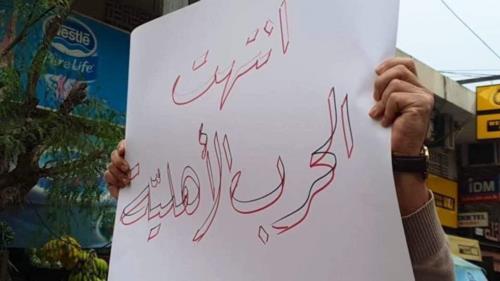 انتهت
الحرب الأهليّة
Nestlé
PureLife
IDM